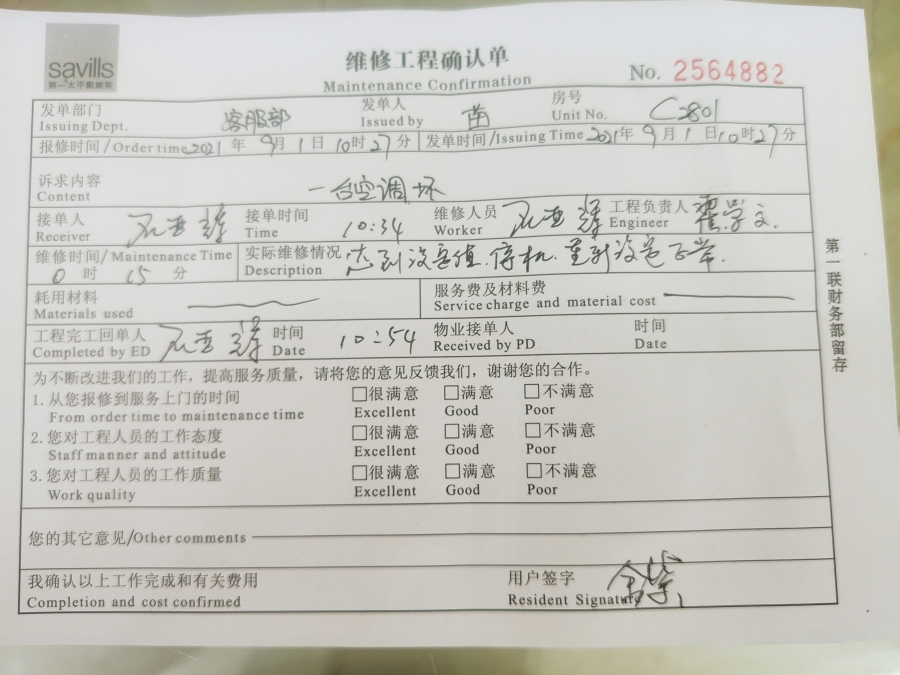 savills
第一太平戴维斯
维修工程确认单
Maintenance Confirmation
No. 2564882
发单部门 客服部 发单人 苗 房号 C2801
Issuing Dept. Issued by Unit No.
报修时间/Order time 2021年9月1日10时27分 发单时间/Issuing Time 2021年9月1日10时27分
诉求内容 一台空调坏
Content
接单人 接单时间 10:34 维修人员 工程负责人 霍学文
Receiver Time Worker Engineer
维修时间/Maintenance Time 实际维修情况 达到设定值.停机.重新设定
0时15分 Description
耗用材料 服务费及材料费
Materials used Service charge and material cost
工程完工回单人 时间 10:54 物业接单人 时间
Completed by ED Date Received by PD Date
为不断改进我们的工作，提高服务质量，请将您的意见反馈我们，谢谢您的合作。
1.从您报修到服务上门的时间 □很满意 □满意 □不满意
From order time to maintenance time Excellent Good Poor
2.您对工程人员的工作态度 □很满意 □满意 □不满意
Staff manner and attitude Excellent Good Poor
3.您对工程人员的工作质量 □很满意 □满意 □不满意
Work quality Excellent Good Poor
您的其它意见/Other comments
我确认以上工作完成和有关费用 用户签字
Completion and cost confirmed Resident Signature
第一联财务部留存